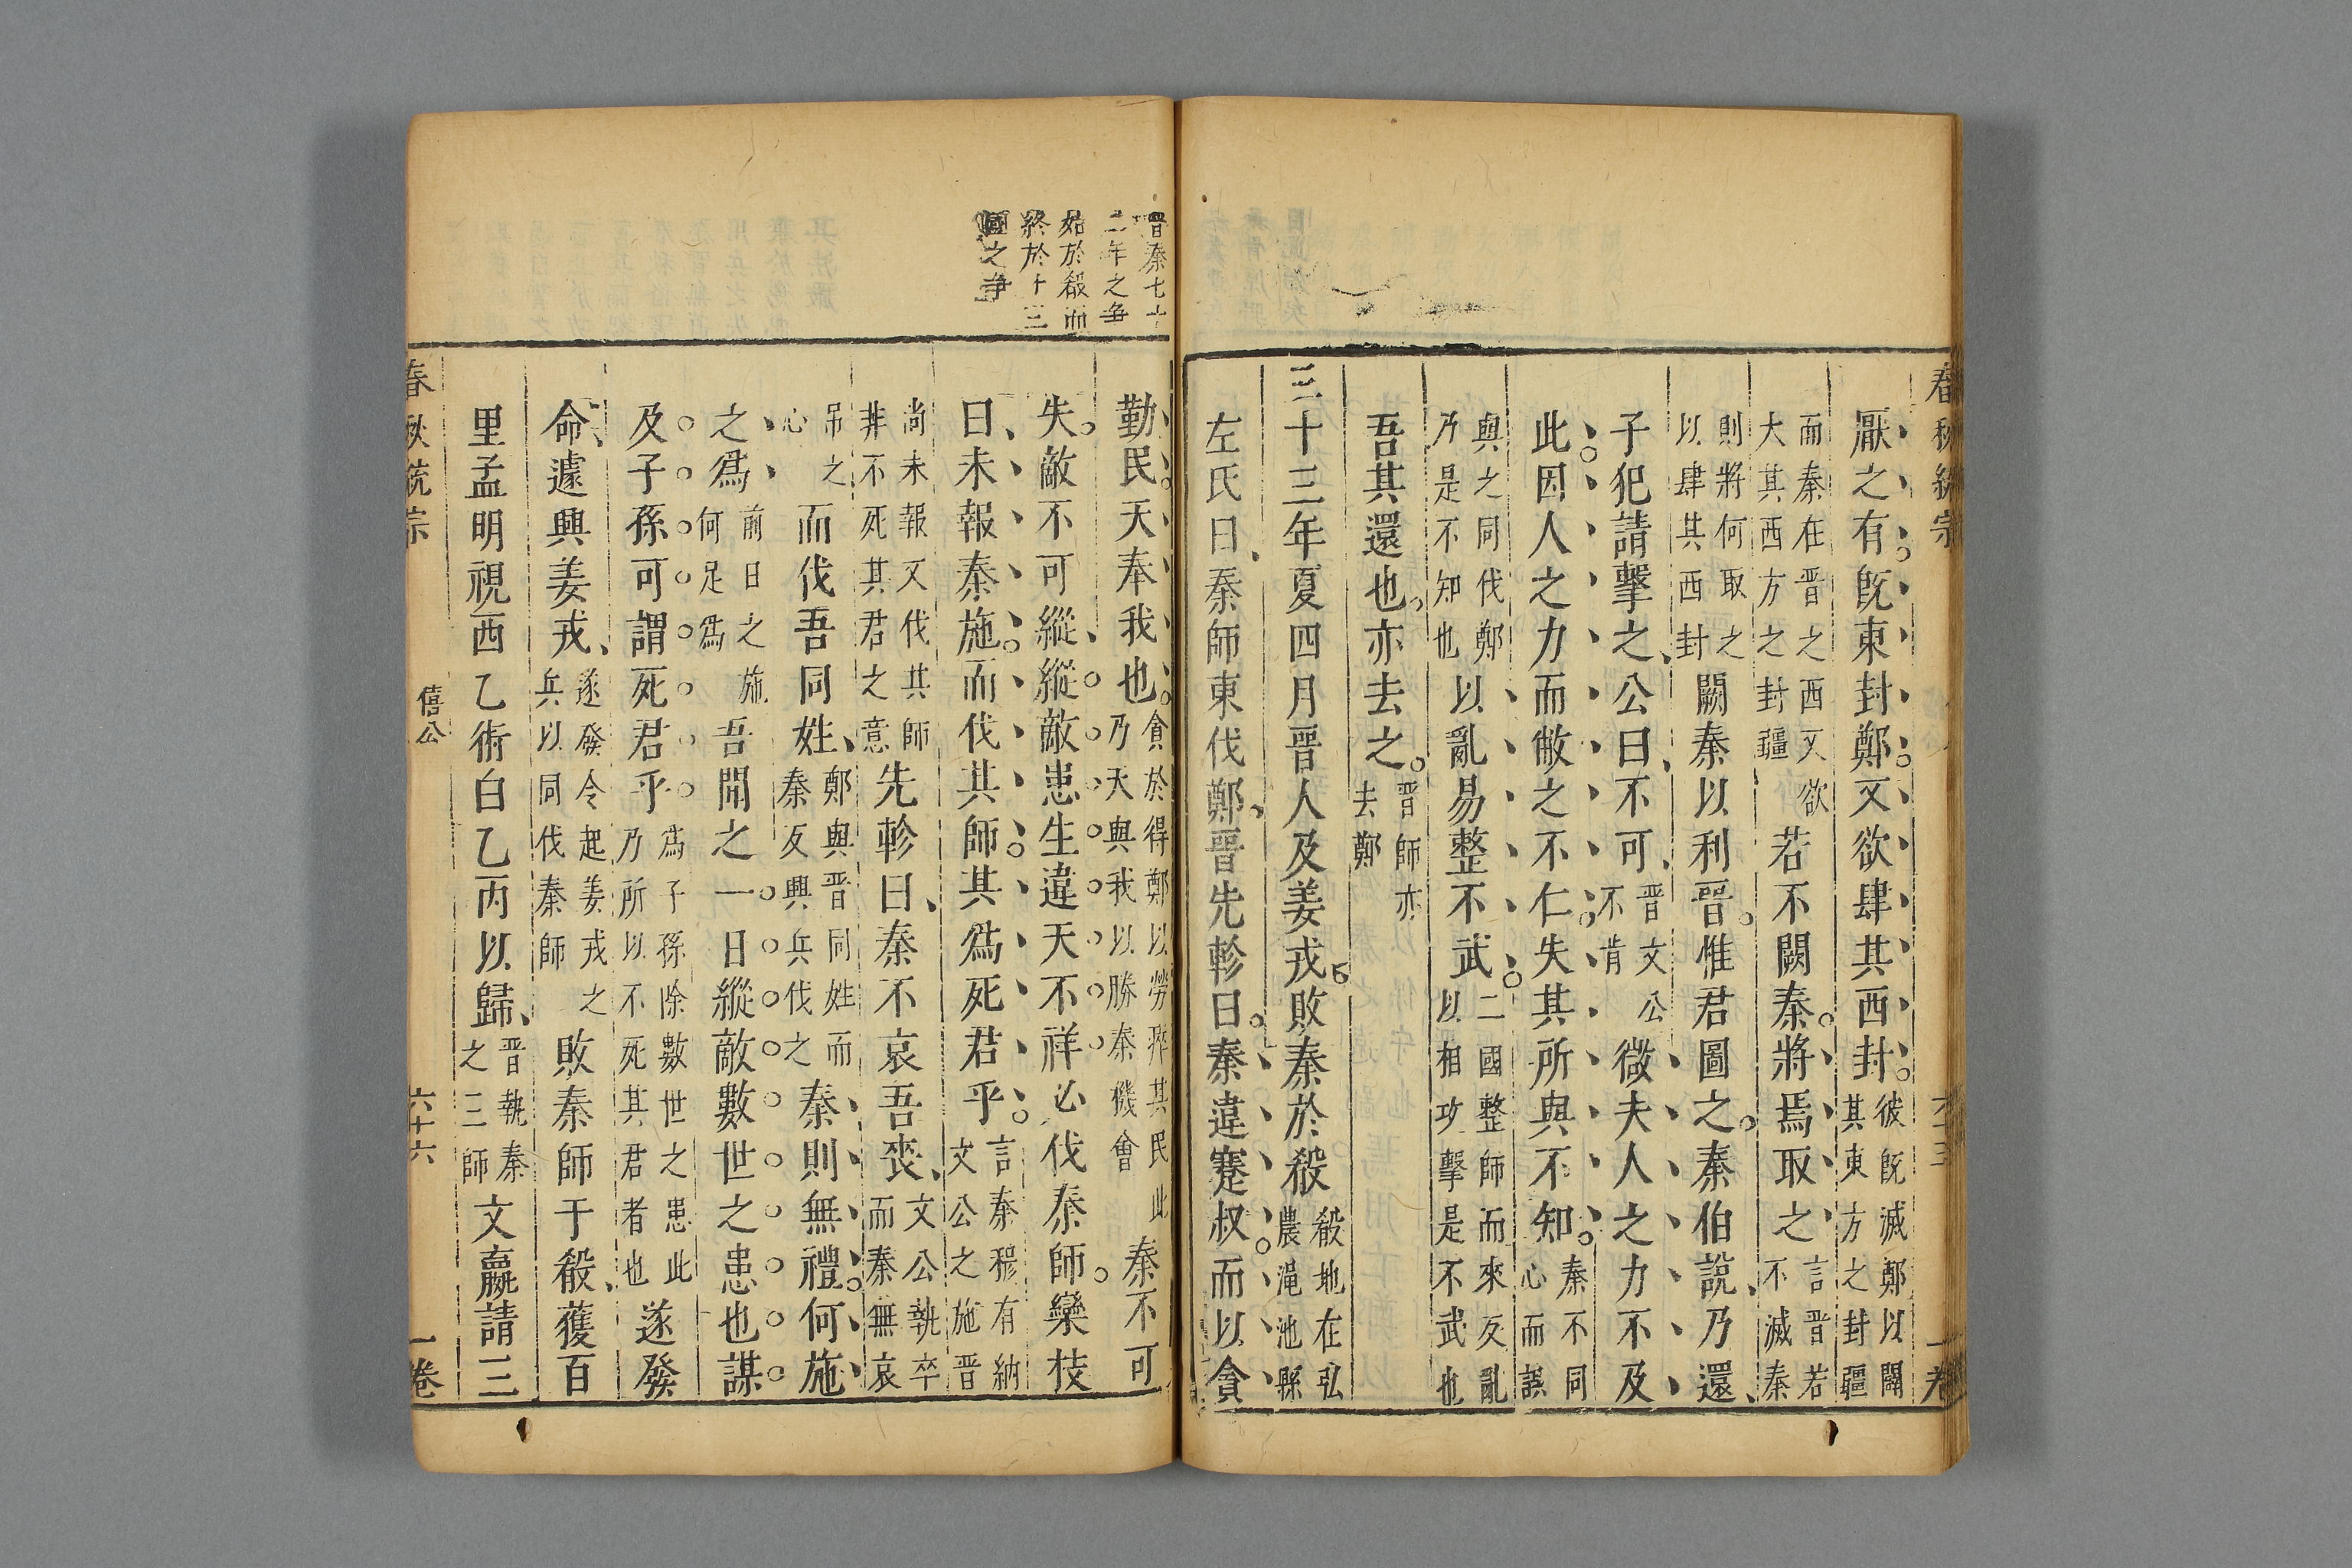 春秋統宗 六十五 一卷
厭之有既東封鄭又欲肆其西封彼既滅鄭以闢其東方之封疆
而秦在晉之西又欲大其西方之封疆若不闕秦將焉取之言晉若不滅秦
則將何取之以肆其西封闕秦以利晉惟君圖之秦伯說乃還
子犯請擊之公曰不可晉文公不肯微夫人之力不及
此因人之力而敝之不仁失其所與不知秦不同心而誤
與之同伐鄭乃是不知也以亂易整不武二國整師而來反亂以相攻擊是不武也
吾其還也亦去之晉師亦去鄭
三十三年夏四月晉人及姜戎敗秦於殽殽地在弘農澠池縣
左氏曰秦師東伐鄭晉先軫曰秦違蹇叔而以貪
晉秦七十
二年之爭
始於殽而
終於十三
國之爭
勤民天奉我也貪於得鄭以勞斃其民此乃天與我以勝秦機會秦不可
失敵不可縱縱敵患生違天不祥必伐秦師欒枝
曰未報秦施而伐其師其爲死君乎言秦穆有納文公之施晉
尚未報又伐其師非不死其君之意先軫曰秦不哀吾喪文公執卒而秦無哀
吊之心而伐吾同姓鄭與晉同姓而秦反興兵伐之秦則無禮何施
之爲前日之施何足爲吾聞之一日縱敵數世之患也謀
及子孫可謂死君乎爲子孫除數世之患此乃所以不死其君者也遂發
命遽興姜戎遂發令起姜戎之兵以同伐秦師敗秦師于殽獲百
里孟明視西乞術白乙丙以歸晉執秦之三師文嬴請三
春秋統宗 僖公 六十六 一卷